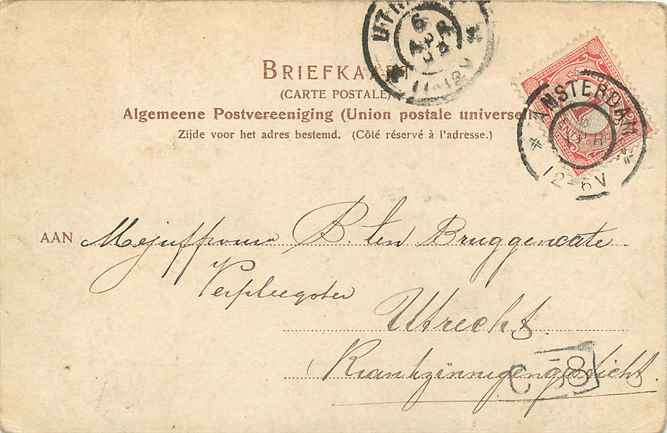 UTR
6
APR
11-12V
BRIEFKA
(CARTE POSTALE)
Algemeene Postvereeniging (Union postale universelle)
Zijde voor het adres bestemd. (Côté réservé à l'adresse.)
AMSTERDAM
12-6V
AAN Mejuffrouw B. ten Bruggencate
Verpleegster
Utrecht
Krankzinnigengesticht
C 8